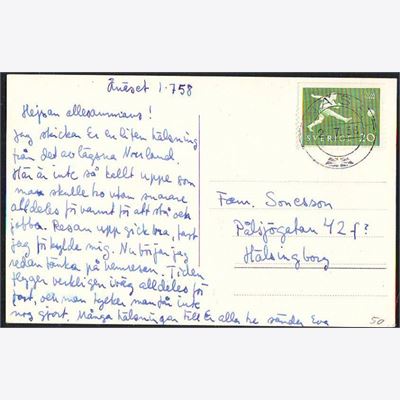 Lnäset 1.7 58
Hejsan allesammans!
Jag skickar Er en liten hälsning
från det avlägsna Norrland.
Här är inte så kallt uppe som
man skulle tro utan snarare
alldeles för varmt för att stå och
jobba. Resan upp gick bra, fast
jag förkylde mig. Nu börjar jag
redan tänka på hemresan. Tiden
flyger verkligen iväg alldeles för
fort, och man tycker man får inte
nog gjort. Många hälsningar till Er alla tre sänder Eva
SVERIGE 20
Fam. Sonesson
Pålsjögatan 42 f?
Hälsingborg
50